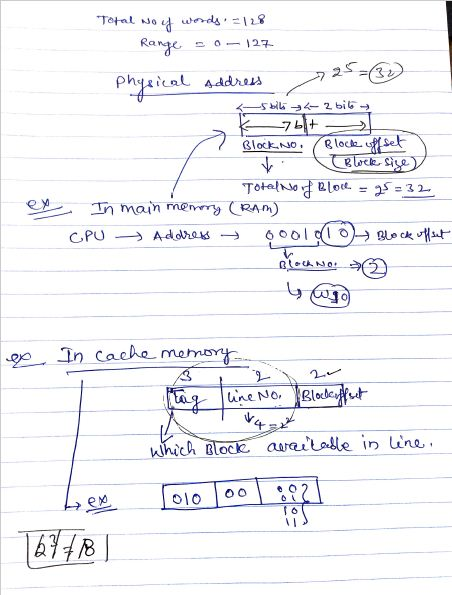 Total No of words = 128
Range = 0 – 127
Physical Address
→ 2^5 = 32
5 bits 2 bits
7 bit
Block No. Block offset
(Block Size)
Total No of Block = 2^5 = 32
ex. In main memory (RAM)
CPU → Address → 0001010 → Block offset
Block No. → 2
↳ W10
ex In cache memory
3 2 2
Tag Line No. Block offset
4 = 2^2
Which Block available in line.
ex 010 00 00
01
10
11